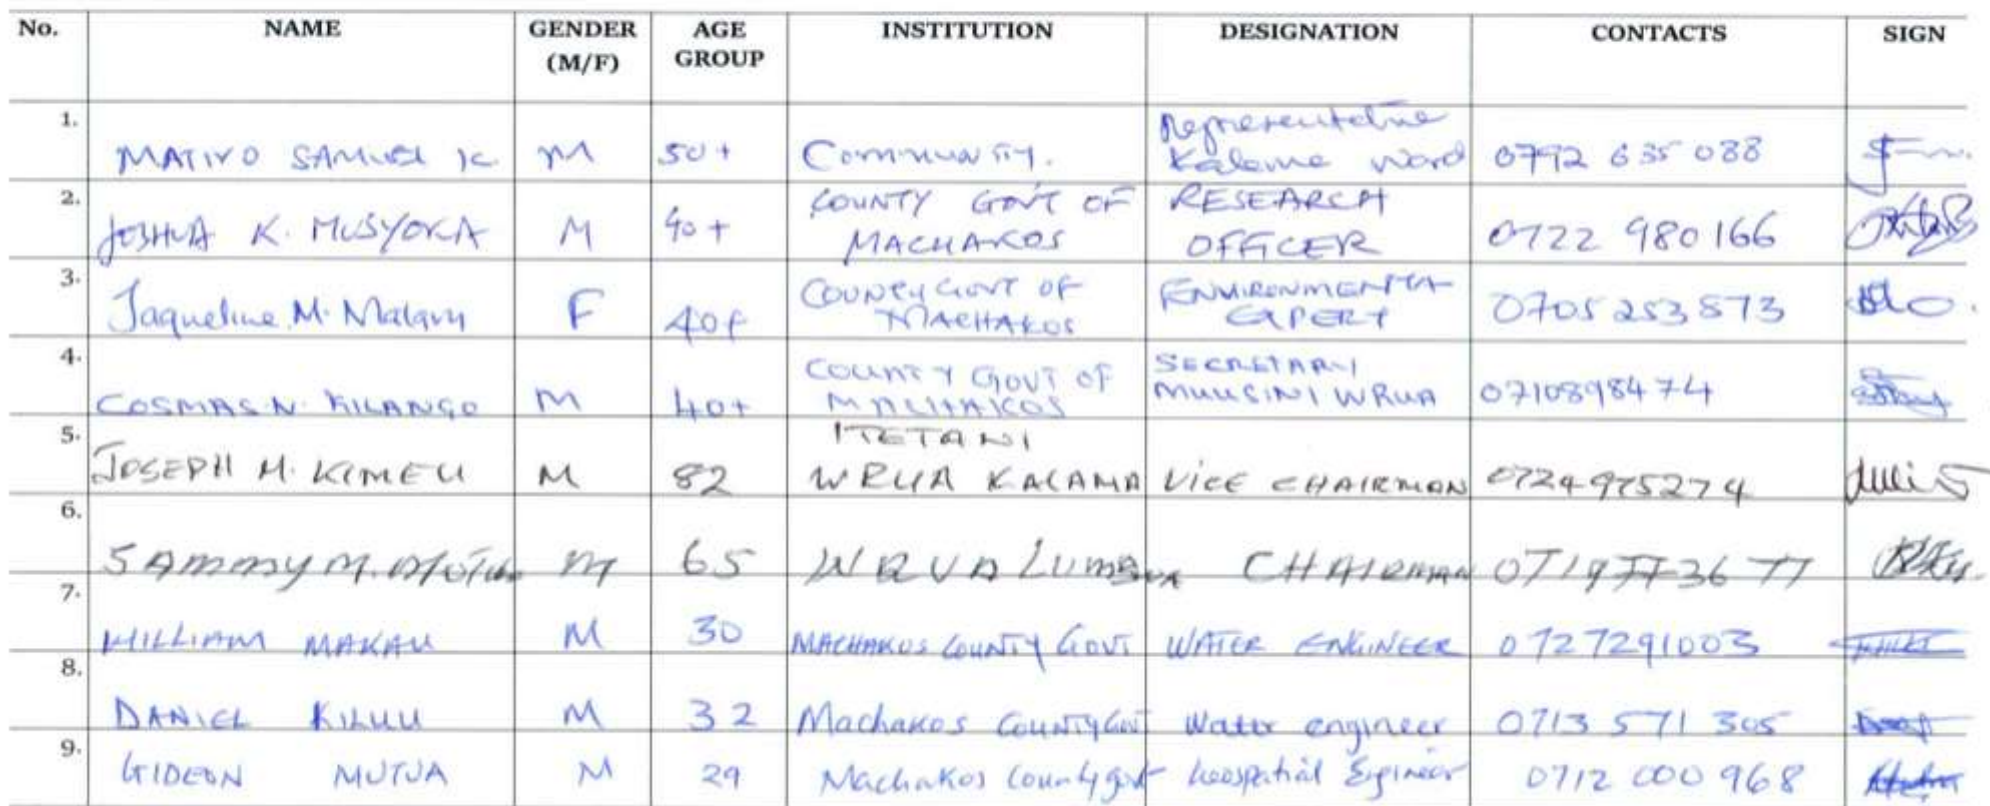 No. NAME GENDER (M/F) AGE GROUP INSTITUTION DESIGNATION CONTACTS SIGN
1. MATIVO SAMUEL K. M 50+ COMMUNITY. Representative Kalama Ward 0792 635 088
2. JOSHUA K. MUSYOKA M 40+ COUNTY GOVT OF MACHAKOS RESEARCH OFFICER 0722 980166
3. Jaqueline M. F 40+ COUNTY GOVT OF MACHAKOS ENVIRONMENTA EXPERT 0705 253 873
4. COSMAS N. KILANGO M 40+ COUNTY GOVT OF MACHAKOS SECRETARY MUUSINI WRUA 0710898474
5. JOSEPH M. KIMEU M 82 ITETANI WRUA KALAMA VICE CHAIRMAN 0724975274
6. SAMMY M. M 65 WRUA CHAIRMAN 0719773677
7. WILLIAM MAKAU M 30 MACHAKOS COUNTY GOVT WATER ENGINEER 0727291003
8. DANIEL KILUU M 32 Machakos County Govt Water engineer 0713 571 305
9. GIDEON MUTUA M 29 Machakos County govt Geospatial Engineer 0712 000 968